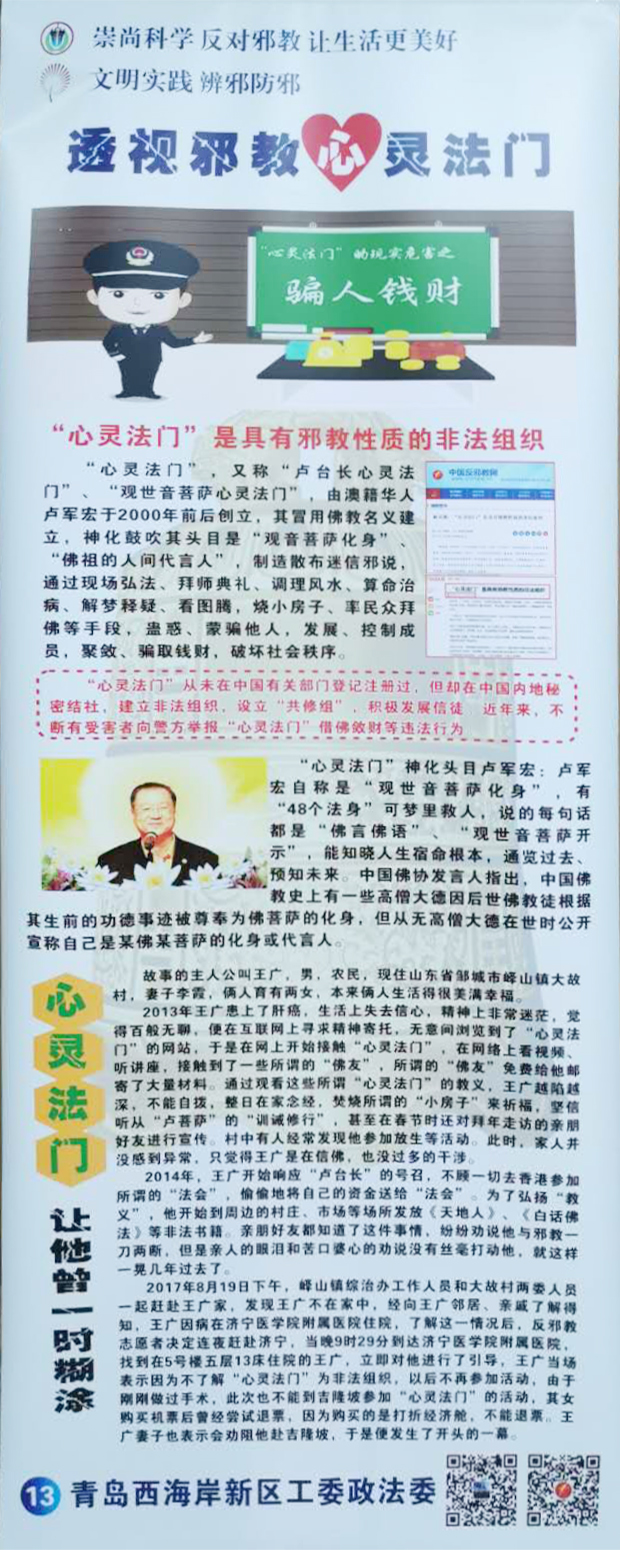 崇尚科学 反对邪教 让生活更美好
文明实践 辨邪防邪
透视邪教心灵法门
“心灵法门”的现实危害之
骗人钱财
“心灵法门”是具有邪教性质的非法组织
“心灵法门”，又称“卢台长心灵法
门”、“观世音菩萨心灵法门”，由澳籍华人
卢军宏于2000年前后创立，其冒用佛教名义建
立，神化鼓吹其头目是“观音菩萨化身”、
“佛祖的人间代言人”，制造散布迷信邪说，
通过现场弘法、拜师典礼、调理风水、算命治
病、解梦释疑、看图腾，烧小房子、率民众拜
佛等手段，蛊惑、蒙骗他人，发展、控制成
员，聚敛、骗取钱财，破坏社会秩序。
中国反邪教网
“心灵法门”从未在中国有关部门登记注册过，但却在中国内地秘
密结社，建立非法组织，设立“共修组”，积极发展信徒 近年来，不
断有受害者向警方举报“心灵法门”借佛敛财等违法行为
“心灵法门”神化头目卢军宏：卢军
宏自称是“观世音菩萨化身”，有
“48个法身”可梦里救人，说的每句话
都是“佛言佛语”、“观世音菩萨开
示”，能知晓人生宿命根本，通览过去、
预知未来。中国佛协发言人指出，中国佛
教史上有一些高僧大德因后世佛教徒根据
其生前的功德事迹被尊奉为佛菩萨的化身，但从无高僧大德在世时公开
宣称自己是某佛某菩萨的化身或代言人。
心灵法门
让他曾一时糊涂
故事的主人公叫王广，男，农民，现住山东省邹城市峄山镇大故
村，妻子李霞，俩人育有两女，本来俩人生活得很美满幸福。
2013年王广患上了肝癌，生活上失去信心，精神上非常迷茫，觉
得百般无聊，便在互联网上寻求精神寄托，无意间浏览到了“心灵法
门”的网站，于是在网上开始接触“心灵法门”，在网络上看视频、
听讲座，接触到了一些所谓的“佛友”，所谓的“佛友”免费给他邮
寄了大量材料。通过观看这些所谓“心灵法门”的教义，王广越陷越
深，不能自拨，整日在家念经，焚烧所谓的“小房子”来祈福，坚信
听从“卢菩萨”的“训诫修行”，甚至在春节时还对拜年走访的亲朋
好友进行宣传。村中有人经常发现他参加放生等活动。此时，家人并
没感到异常，只觉得王广是在信佛，也没过多的干涉。
2014年，王广开始响应“卢台长”的号召，不顾一切去香港参加
所谓的“法会”，偷偷地将自己的资金送给“法会”。为了弘扬“教
义”，他开始到周边的村庄、市场等场所发放《天地人》、《白话佛
法》等非法书籍。亲朋好友都知道了这件事情，纷纷劝说他与邪教一
刀两断，但是亲人的眼泪和苦口婆心的劝说没有丝毫打动他，就这样
一晃几年过去了。
2017年8月19日下午，峄山镇综治办工作人员和大故村两委人员
一起赶赴王广家，发现王广不在家中，经向王广邻居、亲戚了解得
知，王广因病在济宁医学院附属医院住院，了解这一情况后，反邪教
志愿者决定连夜赶赴济宁，当晚9时29分到达济宁医学院附属医院，
找到在5号楼五层13床住院的王广，立即对他进行了引导，王广当场
表示因为不了解“心灵法门”为非法组织，以后不再参加活动，由于
刚刚做过手术，此次也不能到吉隆坡参加“心灵法门”的活动，其女
购买机票后曾经尝试退票，因为购买的是打折经济舱，不能退票。王
广妻子也表示会劝阻他赴吉隆坡，于是便发生了开头的一幕。
13 青岛西海岸新区工委政法委